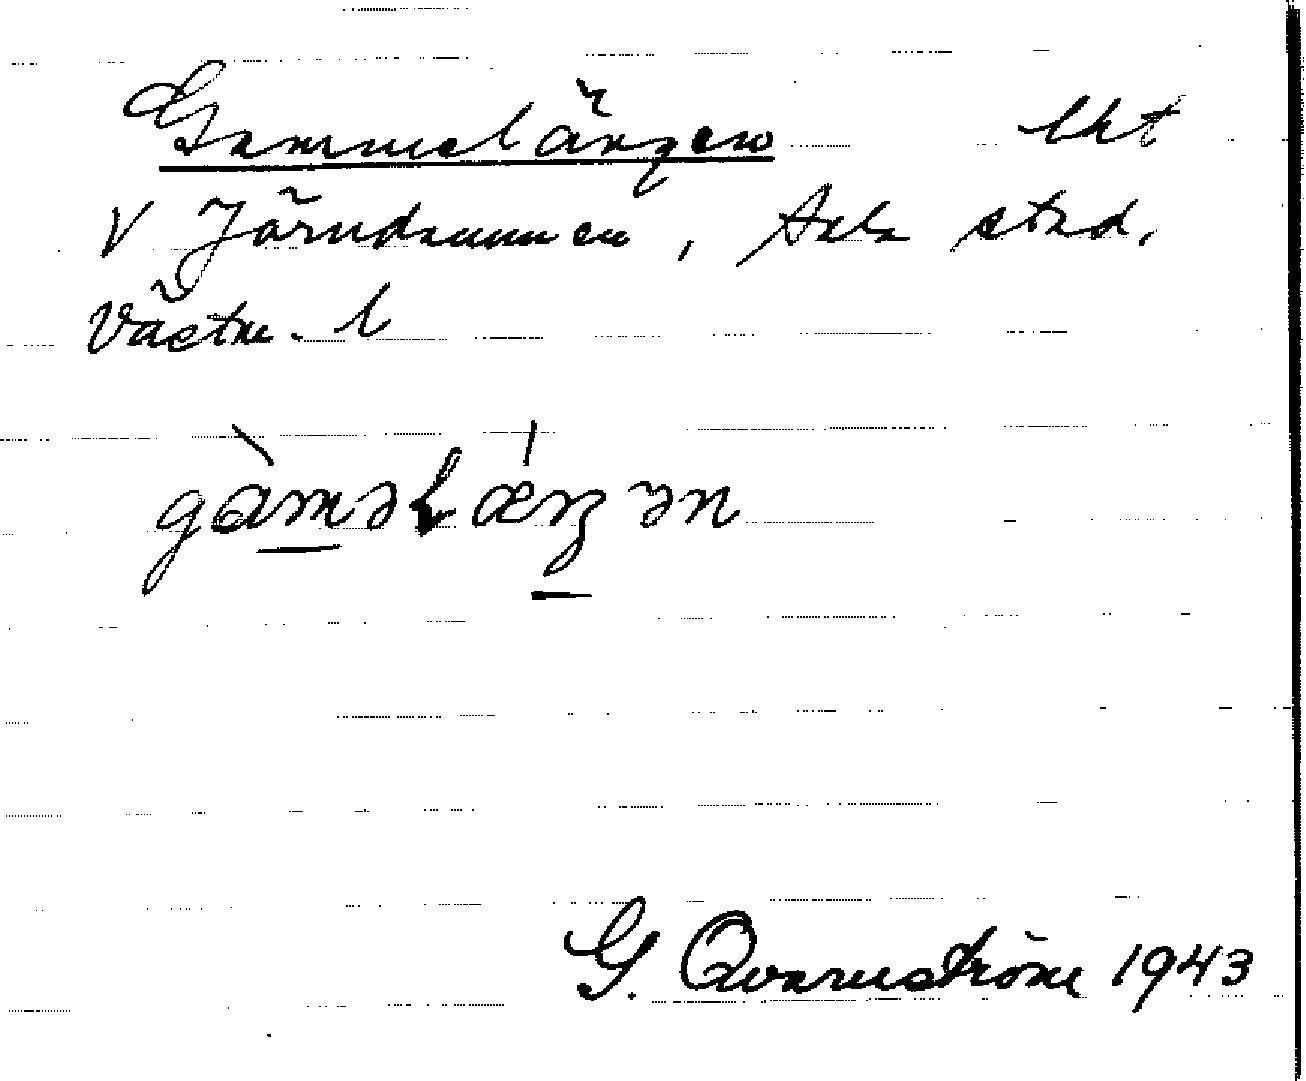 Gammelängen lht
V Järndammen, Sala stad,
Västm. l
gàməLǽŋən
G. Qvarnström 1943